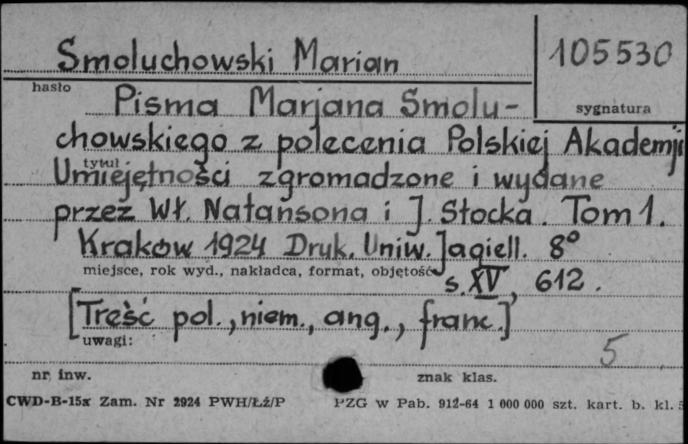 Smoluchowski Marian
105530
hasło
sygnatura
Pisma Marjana Smolu-
chowskiego z polecenia Polskiej Akademji
tytuł
Umiejętności zgromadzone i wydane
przez Wł. Natansona i J. Stocka. Tom 1.
Kraków 1924 Druk. Uniw. Jagiell. 8°
miejsce, rok wyd., nakładca, format, objętość
s. XV, 612.
[Treść pol., niem., ang., franc.]
uwagi:
5
nr inw.
znak klas.
CWD-B-15x Zam. Nr 2924 PWH/Łź/P
PZG w Pab. 912-64 1 000 000 szt. kart. b. kl. 5